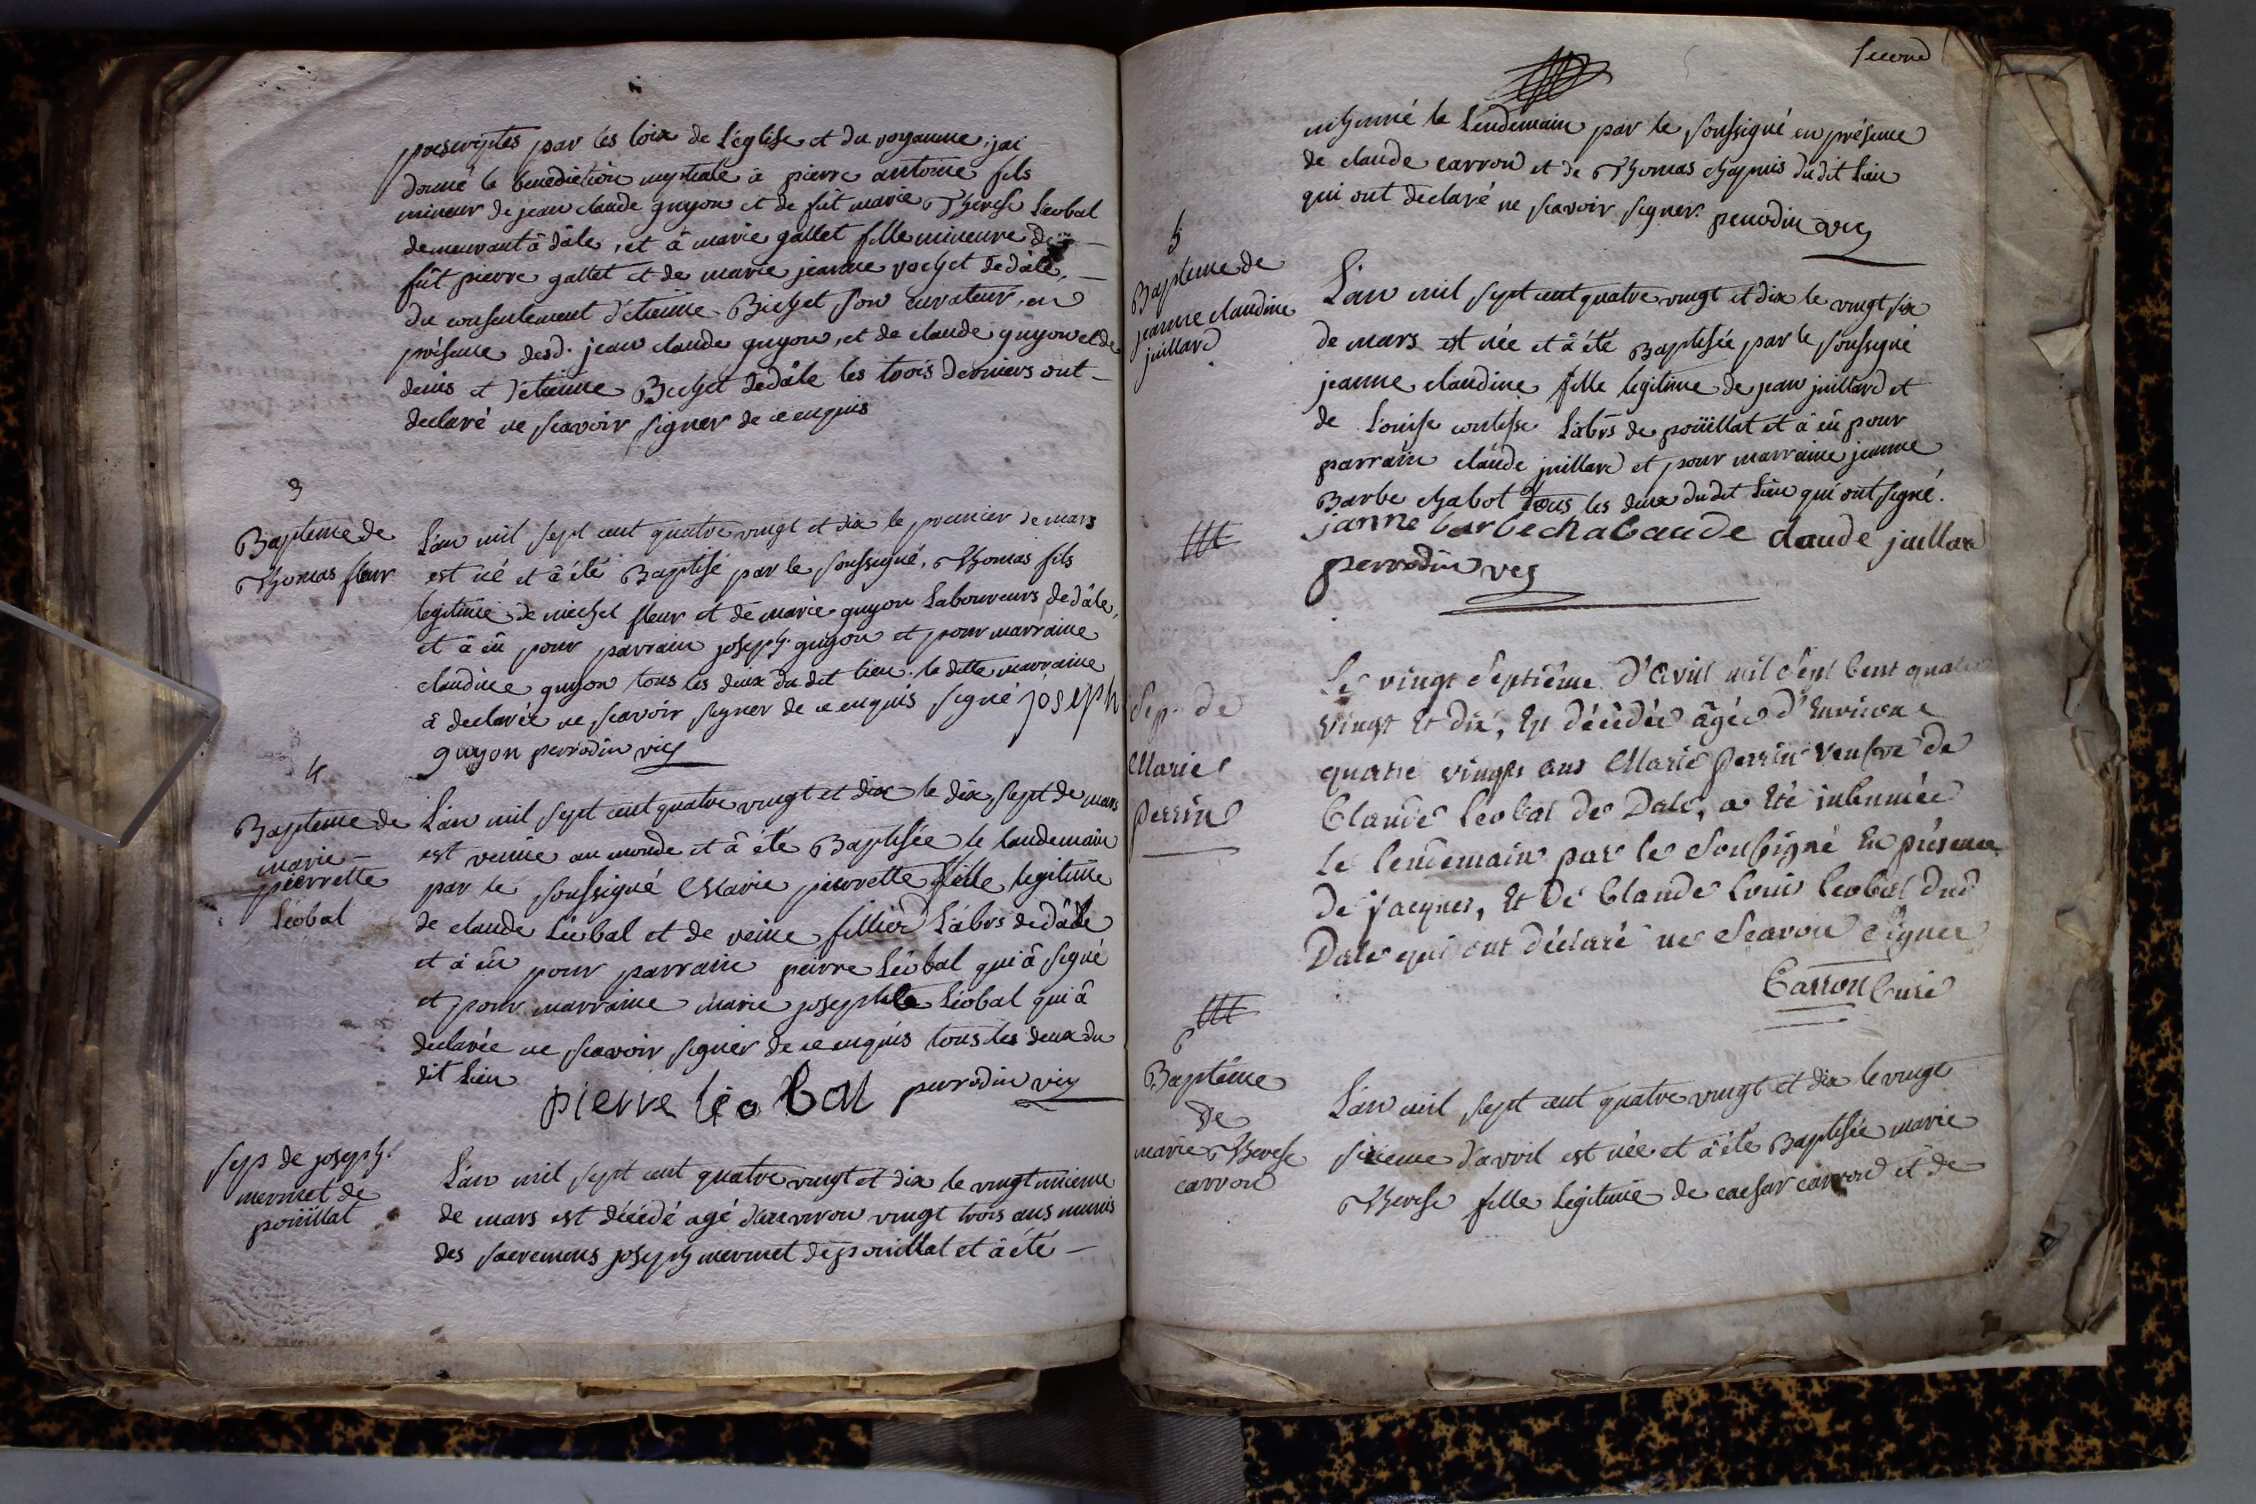 prescriptes par les loix de L'église et du royaume, jai
donné la benediction nuptiale à pierre antoine fils
mineur de jean claude guyon et de fût marie Therese Léobal
demeurant â dâle, et â marie gallet fille mineure de
fût pierre gallet et de marie jeanne rochet de dâle,
du consentement d'etienne Bichet son curateur, en
présence desd. jean claude guyon, et de claude guyon et de
denis et d'etienne Bichet de dâle les trois derniers ont
declaré ne scavoir signer de ce enquis
3
Bapteme de
Thomas fleur
L'an mil sept cent quatre vingt et dix le premier de mars
est né et â été Baptisé par le soussigné, Thomas fils
legitime de michel fleur et de marie guyon Laboureurs de dâle,
et â eû pour parrain joseph guyon et pour marraine
claudine guyon tous les deux du dit lieu. la ditte marraine
â declarée ne scavoir signer de ce enquis signé joseph
guyon perrodin vic
4
Bapteme de
marie
pierrette
Léobal
L'an mil sept cent quatre vingt et dix le dix sept de mars
est venüe au monde et â été Baptisée le landemain
par le soussigné Marie pierrette fille legitime
de claude Léobal et de reine fillier Labrs de dâle
et â eû pour parrain pierre Léobal qui â signé
et pour marraine marie josephte Léobal qui â
declarée ne scavoir signer de ce enquis tous les deux du
dit Lieu
pierre léobal perrodin vic
sep de joseph
mermet de
poüillat
L'an mil sept cent quatre vingt et dix le vingt unieme
de mars est décédé agé d'anviron vingt trois ans munis
des sacremens joseph mermet de pouillat et â été
second
inhumé le Lendemain par le soussigné en présence
de claude carron et de Thomas chapuis dudit Lieu
qui ont declaré ne scavoir signer. perrodin vic
5
Bapteme de
jeanne claudine
juillard
L'an mil sept cent quatre vingt et dix le vingt six
de mars est née et â été Baptisée par le soussigné
jeanne claudine fille legitime de jean juillard et
de Louise Labrs de poüillat et â eû pour
parrain claude juillard et pour marraine jeanne
Barbe chabot tous les deux du dit Lieu qui ont signé.
janne barbe chabaude claude juillard
perrodin vic
Sep. de
Marie
Perrin
Le vingt septiême d'Avril mil sept cent quatre
vingt et dix, est décédée âgée d'environ
quatre vingts ans Marie Perrin veufve de
Claude Leobal de Dale, a été inhumée
le lendemain par le soussigné en présence
de jacques, et de Claude Louis Leobal dud
Dale qui ont déclaré ne scavoir signer
Carron Curé
6
Baptême
de
marie Therese
carron
L'an mil sept cent quatre vingt et dix le vingt
sixieme d'avril est née et â été Baptisée marie
Therese fille legitime de caesar carron et de